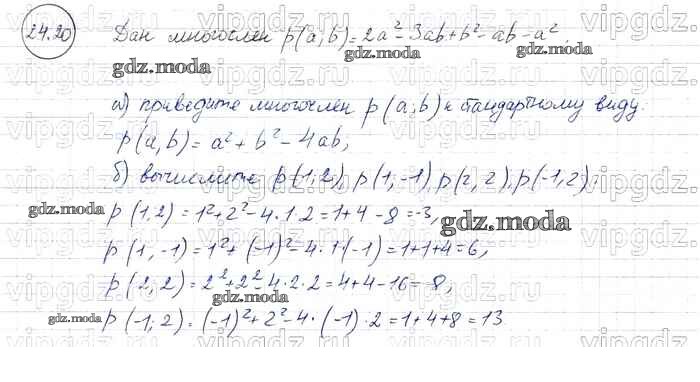 24.20
Дан многочлен p(a;b)=2a²-3ab+b²-ab-a².
gdz.moda gdz.moda gdz.moda
а) приведите многочлен p(a;b) к стандартному виду.
p(a,b)=a²+b²-4ab;
б) вычислите p(1,2), p(1,-1), p(2,2), p(-1,2).
gdz.moda p(1,2)=1²+2²-4·1·2=1+4-8=-3, gdz.moda
p(1,-1)=1²+(-1)²-4·1·(-1)=1+1+4=6,
p(2,2)=2²+2²-4·2·2=4+4-16=-8,
gdz.moda
gdz.moda p(-1;2)=(-1)²+2²-4·(-1)·2=1+4+8=13.
vipgdz.ru